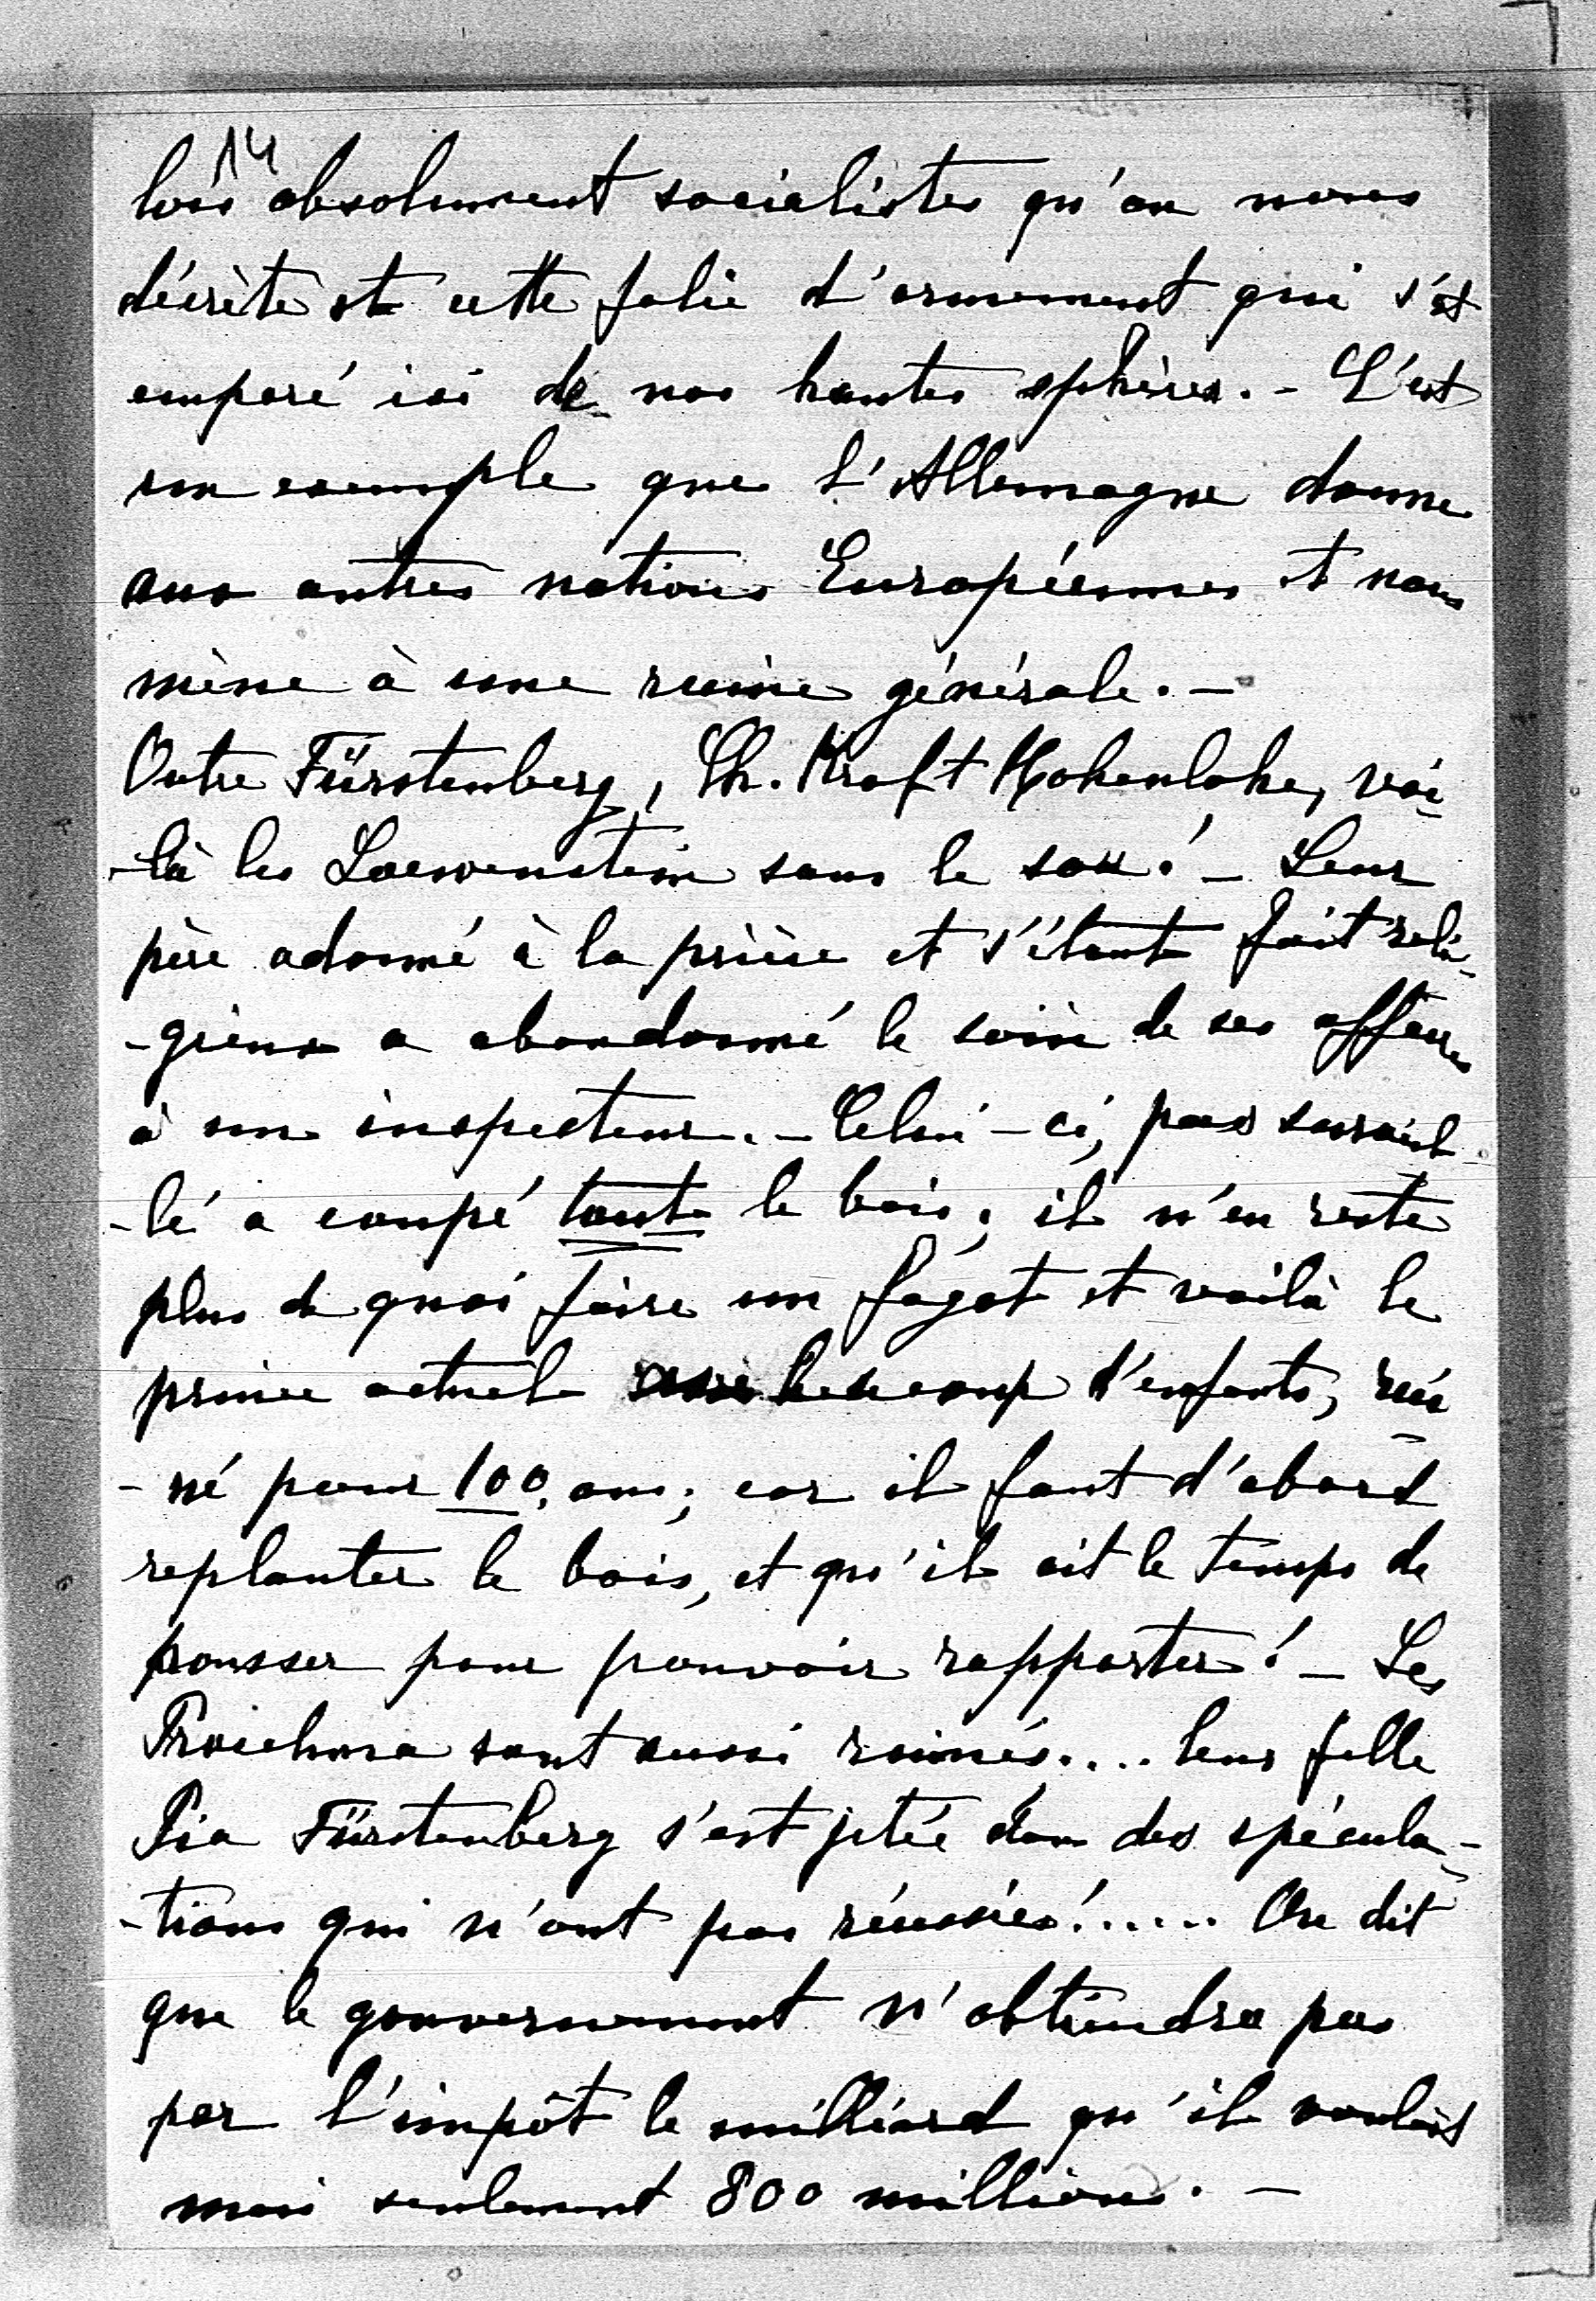 14
lois absolument socialistes qu'on nous
décrète et cette folie d'armement qui s'est
emparé ici de nos hautes sphères. - C'est
un exemple que l'Allemagne donne
aux autres nations Européennes et nous
mène à une ruine générale. -
Outre Fürstenberg, Ch. Kraft Hohenlohe, voi-
-là les Loewenstein sans le sou! - Leur
père adonné à la prière et s'étant fait reli-
-gieux a abandonné le soin de ses affaires
à un inspecteur. - Celui-ci, pas surveil-
-lé a coupé tout le bois; il n'en reste
plus de quoi faire un fagot et voilà le
prince actuel beaucoup d'enfants, rui-
-né pour 100 ans; car il faut d'abord
replanter le bois, et qu'il ait le temps de
pousser pour pouvoir rapporter! - Les
sont aussi ruinés.... leur fille
Pia Fürstenberg s'est jetée dans des spécula-
-tions qui n'ont pas réussies!...... On dit
que le gouvernement n'obtiendra pas
par l'impôt le milliard qu'il voulait
mais seulement 800 millions. -